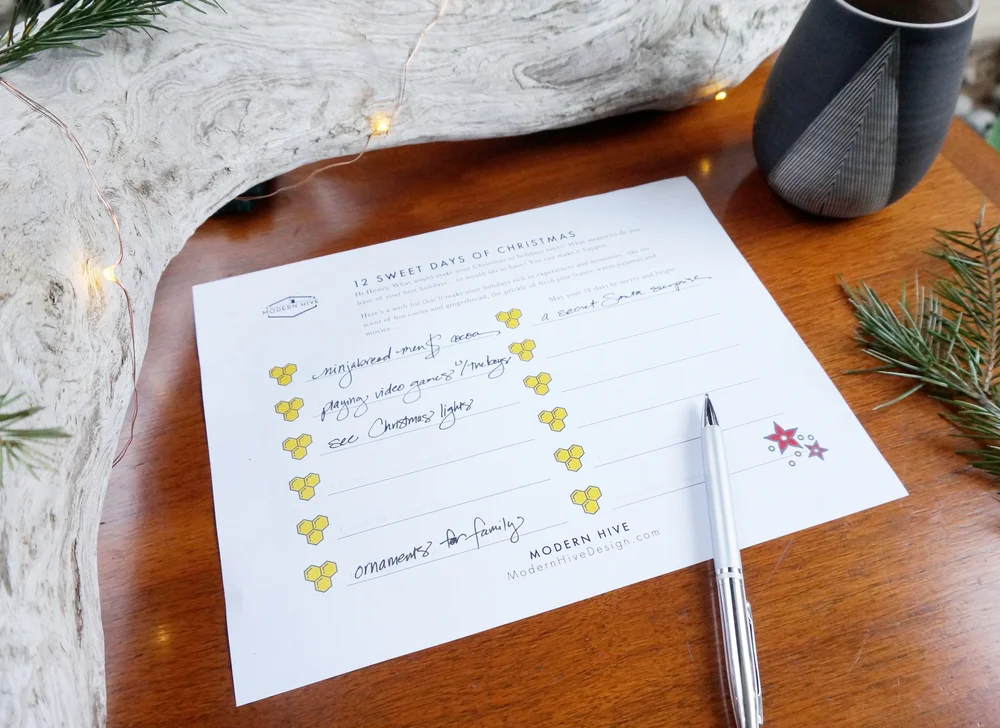 12 SWEET DAYS OF CHRISTMAS
Hi Honey! What would make your Christmas or holidays sweet? What memories do you
have of your best holidays... or would like to have? You can make it happen.
Here's a wish list that'll make your holidays rich in experiences and memories, like the
scent of hot cocoa and gingerbread, the prickle of fresh pine trees, warm pajamas and
movies...
May your 12 days be merry and bright
MODERN HIVE
ninjabread men & cocoa
playing video games w/ the boys
see Christmas lights
ornaments for family
a secret Santa surprise
MODERN HIVE
ModernHiveDesign.com